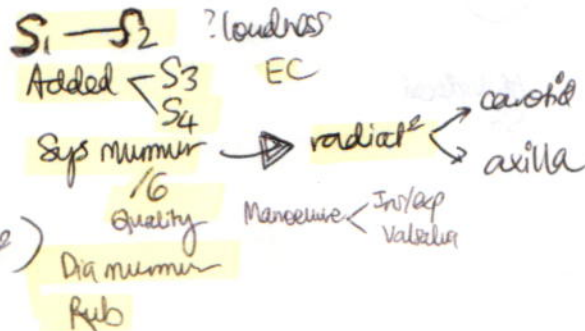 S1 — S2 ? loudness
Added < S3 EC
S4
Sys murmur → radiat² carotid
axilla
/6
Quality Manoeuvre < Ins/exp
Valsalva
Dia murmur
Rub